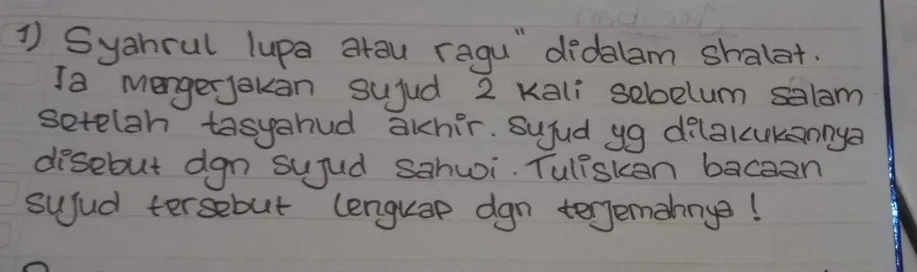 1) Syahrul lupa atau ragu" didalam shalat.
Ia Mengerjakan sujud 2 kali sebelum salam
setelah tasyahud akhir. Sujud yg dilakukannya
disebut dgn sujud sahwi. Tuliskan bacaan
sujud tersebut lengkap dgn terjemahnya!